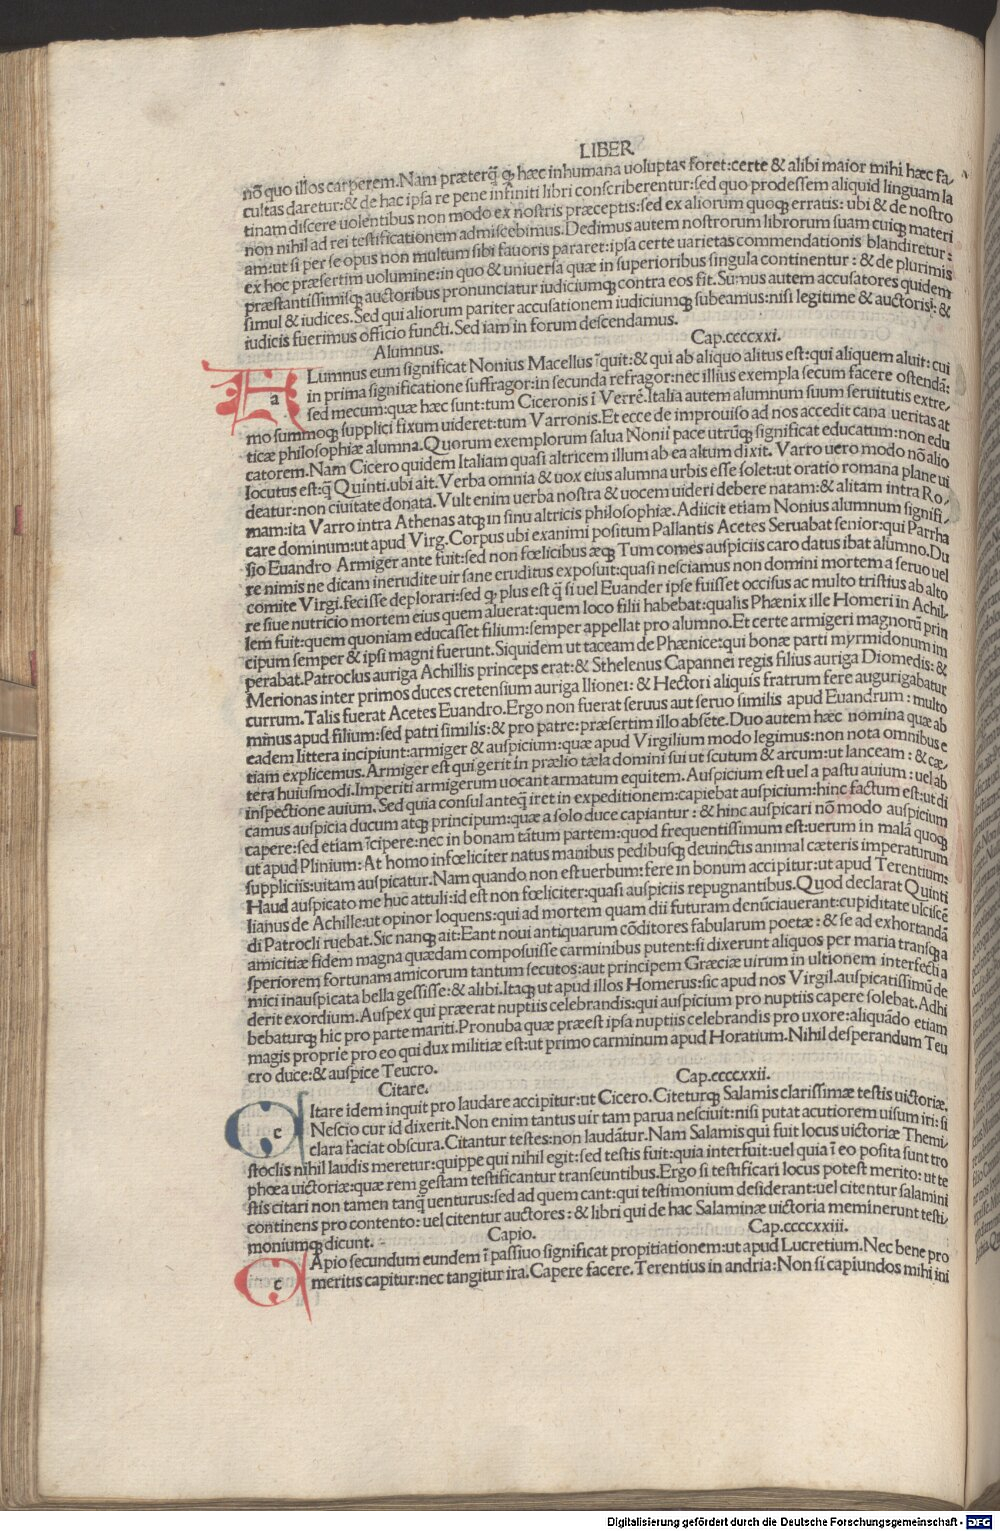 LIBER
nõ quo illos carperem.Nam præterq̃ ꝙ hæc inhumana uoluptas foret:certe & alibi maior mihi hæc fa⸗
cultas daretur:& de hac ipsa re pene infiniti libri conscriberentur:sed quo prodessem aliquid linguam la
tinam discere uolentibus non modo ex nostris præceptis:sed ex aliorum quoqꝫ erratis: ubi & de nostro
non nihil ad rei testificationem admiscebimus.Dedimus autem nostrorum librorum suam cuiqꝫ materi
am:ut si per se opus non multum sibi fauoris pararet:ipsa certe uarietas commendationis blandiretur:
ex hoc præsertim uolumine:in quo & uniuersa quæ in superioribus singula continentur: & de plurimis
præstantissimisqꝫ auctoribus pronunciatur iudiciumqꝫ contra eos fit.Sumus autem accusatores quidem
simul & iudices.Sed qui aliorum pariter accusationem iudiciumqꝫ subeamus:nisi legitime & auctoris: &
iudicis fuerimus officio functi.Sed iam in forum descendamus.
Alumnus. Cap.ccccxxi.
a Lumnus eum significat Nonius Macellus ĩquit:& qui ab aliquo alitus est:qui aliquem aluit: cui
in prima significatione suffragor:in secunda refragor:nec illius exempla secum facere ostendã:
sed mecum:quæ hæc sunt:tum Ciceronis ĩ Verrẽ.Italia autem alumnum suum seruitutis extre⸗
mo summoqꝫ supplici fixum uideret:tum Varronis.Et ecce de improuiso ad nos accedit cana ueritas at
ticæ philosophiæ alumna.Quorum exemplorum salua Nonii pace utrũqꝫ significat educatum:non edu
catorem.Nam Cicero quidem Italiam quasi altricem illum ab ea altum dixit. Varro uero modo nõ alio
locutus est:q̃ Quinti.ubi ait.Verba omnia & uox eius alumna urbis esse solet:ut oratio romana plane ui
deatur:non ciuitate donata.Vult enim uerba nostra & uocem uideri debere natam:& alitam intra Ro⸗
mam:ita Varro intra Athenas atqꝫ in sinu altricis philosophiæ.Adiicit etiam Nonius alumnum signifi⸗
care dominum:ut apud Virg.Corpus ubi exanimi positum Pallantis Acetes Seruabat senior:qui Parrha
sio Euandro Armiger ante fuit:sed non fœlicibus æqꝫ Tum comes auspiciis caro datus ibat alumno.Du
re nimis ne dicam inerudite uir sane eruditus exposuit:quasi nesciamus non domini mortem a seruo uel
comite Virgi.fecisse deplorari:sed ꝙ plus est q̃ si uel Euander ipse fuisset occisus ac multo tristius ab alto
re siue nutricio mortem eius quem aluerat:quem loco filii habebat:qualis Phænix ille Homeri in Achil⸗
lem fuit:quem quoniam educasset filium:semper appellat pro alumno.Et certe armigeri magnorũ prin
cipum semper & ipsi magni fuerunt.Siquidem ut taceam de Phænice:qui bonæ parti myrmidonum im
perabat.Patroclus auriga Achillis princeps erat:& Sthelenus Capannei regis filius auriga Diomedis: &
Merionas inter primos duces cretensium auriga Ilionei: & Hectori aliquis fratrum fere augurigabatur
currum.Talis fuerat Acetes Euandro.Ergo non fuerat seruus aut seruo similis apud Euandrum : multo
minus apud filium:sed patri similis:& pro patre:præsertim illo absẽte.Duo autem hæc nomina quæ ab
eadem littera incipiunt:armiger & auspicium:quæ apud Virgilium modo legimus:non nota omnibus e
tiam explicemus.Armiger est qui gerit in prælio tæla domini sui ut scutum & arcum:ut lanceam : & cæ⸗
tera huiusmodi.Imperiti armigerum uocant armatum equitem.Auspicium est uel a pastu auium : uel ab
inspectione auium. Sed quia consul anteq̃ iret in expeditionem:capiebat auspicium:hinc factum est:ut di
camus auspicia ducum atqꝫ principum:quæ a solo duce capiantur : & hinc auspicari nõ modo auspicium
capere:sed etiam ĩcipere:nec in bonam tãtum partem:quod frequentissimum est:uerum in malã quoqꝫ
ut apud Plinium: At homo infœliciter natus manibus pedibusqꝫ deuinctis animal cæteris imperaturum
suppliciis:uitam auspicatur.Nam quando non est uerbum:fere in bonum accipitur:ut apud Terentium:
Haud auspicato me huc attuli:id est non fœliciter:quasi auspiciis repugnantibus.Quod declarat Quinti
lianus de Achille:ut opinor loquens:qui ad mortem quam dii futuram denũciauerant:cupiditate ulciscẽ
di Patrocli ruebat.Sic nanqꝫ ait:Eant noui antiquarum cõditores fabularum poetæ: & se ad exhortandã
amicitiæ fidem magna quædam composuisse carminibus putent:si dixerunt aliquos per maria transqꝫ a
speriorem fortunam amicorum tantum secutos:aut principem Græciæ uirum in ultionem interfecti a
mici inauspicata bella gessisse:& alibi.Itaqꝫ ut apud illos Homerus:sic apud nos Virgil.auspicatissimũ de
derit exordium.Auspex qui præerat nuptiis celebrandis:qui auspicium pro nuptiis capere solebat.Adhi
bebaturqꝫ hic pro parte mariti.Pronuba quæ præest ipsa nuptiis celebrandis pro uxore:aliquãdo etiam
magis proprie pro eo qui dux militiæ est:ut primo carminum apud Horatium.Nihil desperandum Teu
cro duce:& auspice Teucro.
Citare. Cap.ccccxxii.
c Itare idem inquit pro laudare accipitur:ut Cicero.Citeturqꝫ Salamis clarissimæ testis uictoriæ.
Nescio cur id dixerit.Non enim tantus uir tam parua nesciuit:nisi putat acutiorem uisum iri: si
clara faciat obscura.Citantur testes:non laudãtur.Nam Salamis qui fuit locus uictoriæ Themi⸗
stoclis nihil laudis meretur:quippe qui nihil egit:sed testis fuit:quia interfuit:uel quia ĩ eo posita sunt tro
phœa uictoriæ:quæ rem gestam testificantur transeuntibus.Ergo si testificari locus potest merito: ut te
stis citari non tamen tanq̃ uenturus:sed ad quem cant:qui testimonium desiderant:uel citentur salamini
continens pro contento: uel citentur auctores : & libri qui de hac Salaminæ uictoria meminerunt testi⸗
moniumqꝫ dicunt.
Capio. Cap.ccccxxiii.
c Apio secundum eundem ĩ passiuo significat propitiationem:ut apud Lucretium.Nec bene pro
meritis capitur:nec tangitur ira.Capere facere.Terentius in andria:Non si capiundos mihi ini
Digitalisierung gefördert durch die Deutsche Forschungsgemeinschaft - DFG